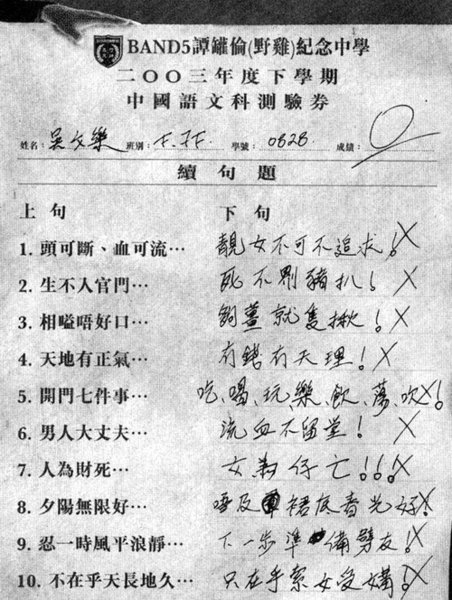 BAND5譚罐倫(野雞)紀念中學
二〇〇三年度下學期
中國語文科測驗券
姓名: 吳文樂 班別: 學號: 0828. 成績: 0
續句題
上句 下句
1. 頭可斷、血可流… 靚女不可不追求! X
2. 生不入官門… 死不豬扒! X
3. 相嗌唔好口… 夠薑就隻揪! X
4. 天地有正氣… 有錢有天理! X
5. 開門七件事… 吃、喝、玩、樂、飲、蕩、吹! X
6. 男人大丈夫… 流血不留堂! X
7. 人為財死… 女為仔亡!!! X
8. 夕陽無限好… 唔及裙底春光好! X
9. 忍一時風平浪靜… 下一步準備劈友! X
10. 不在乎天長地久… 只在乎索女受媾! X